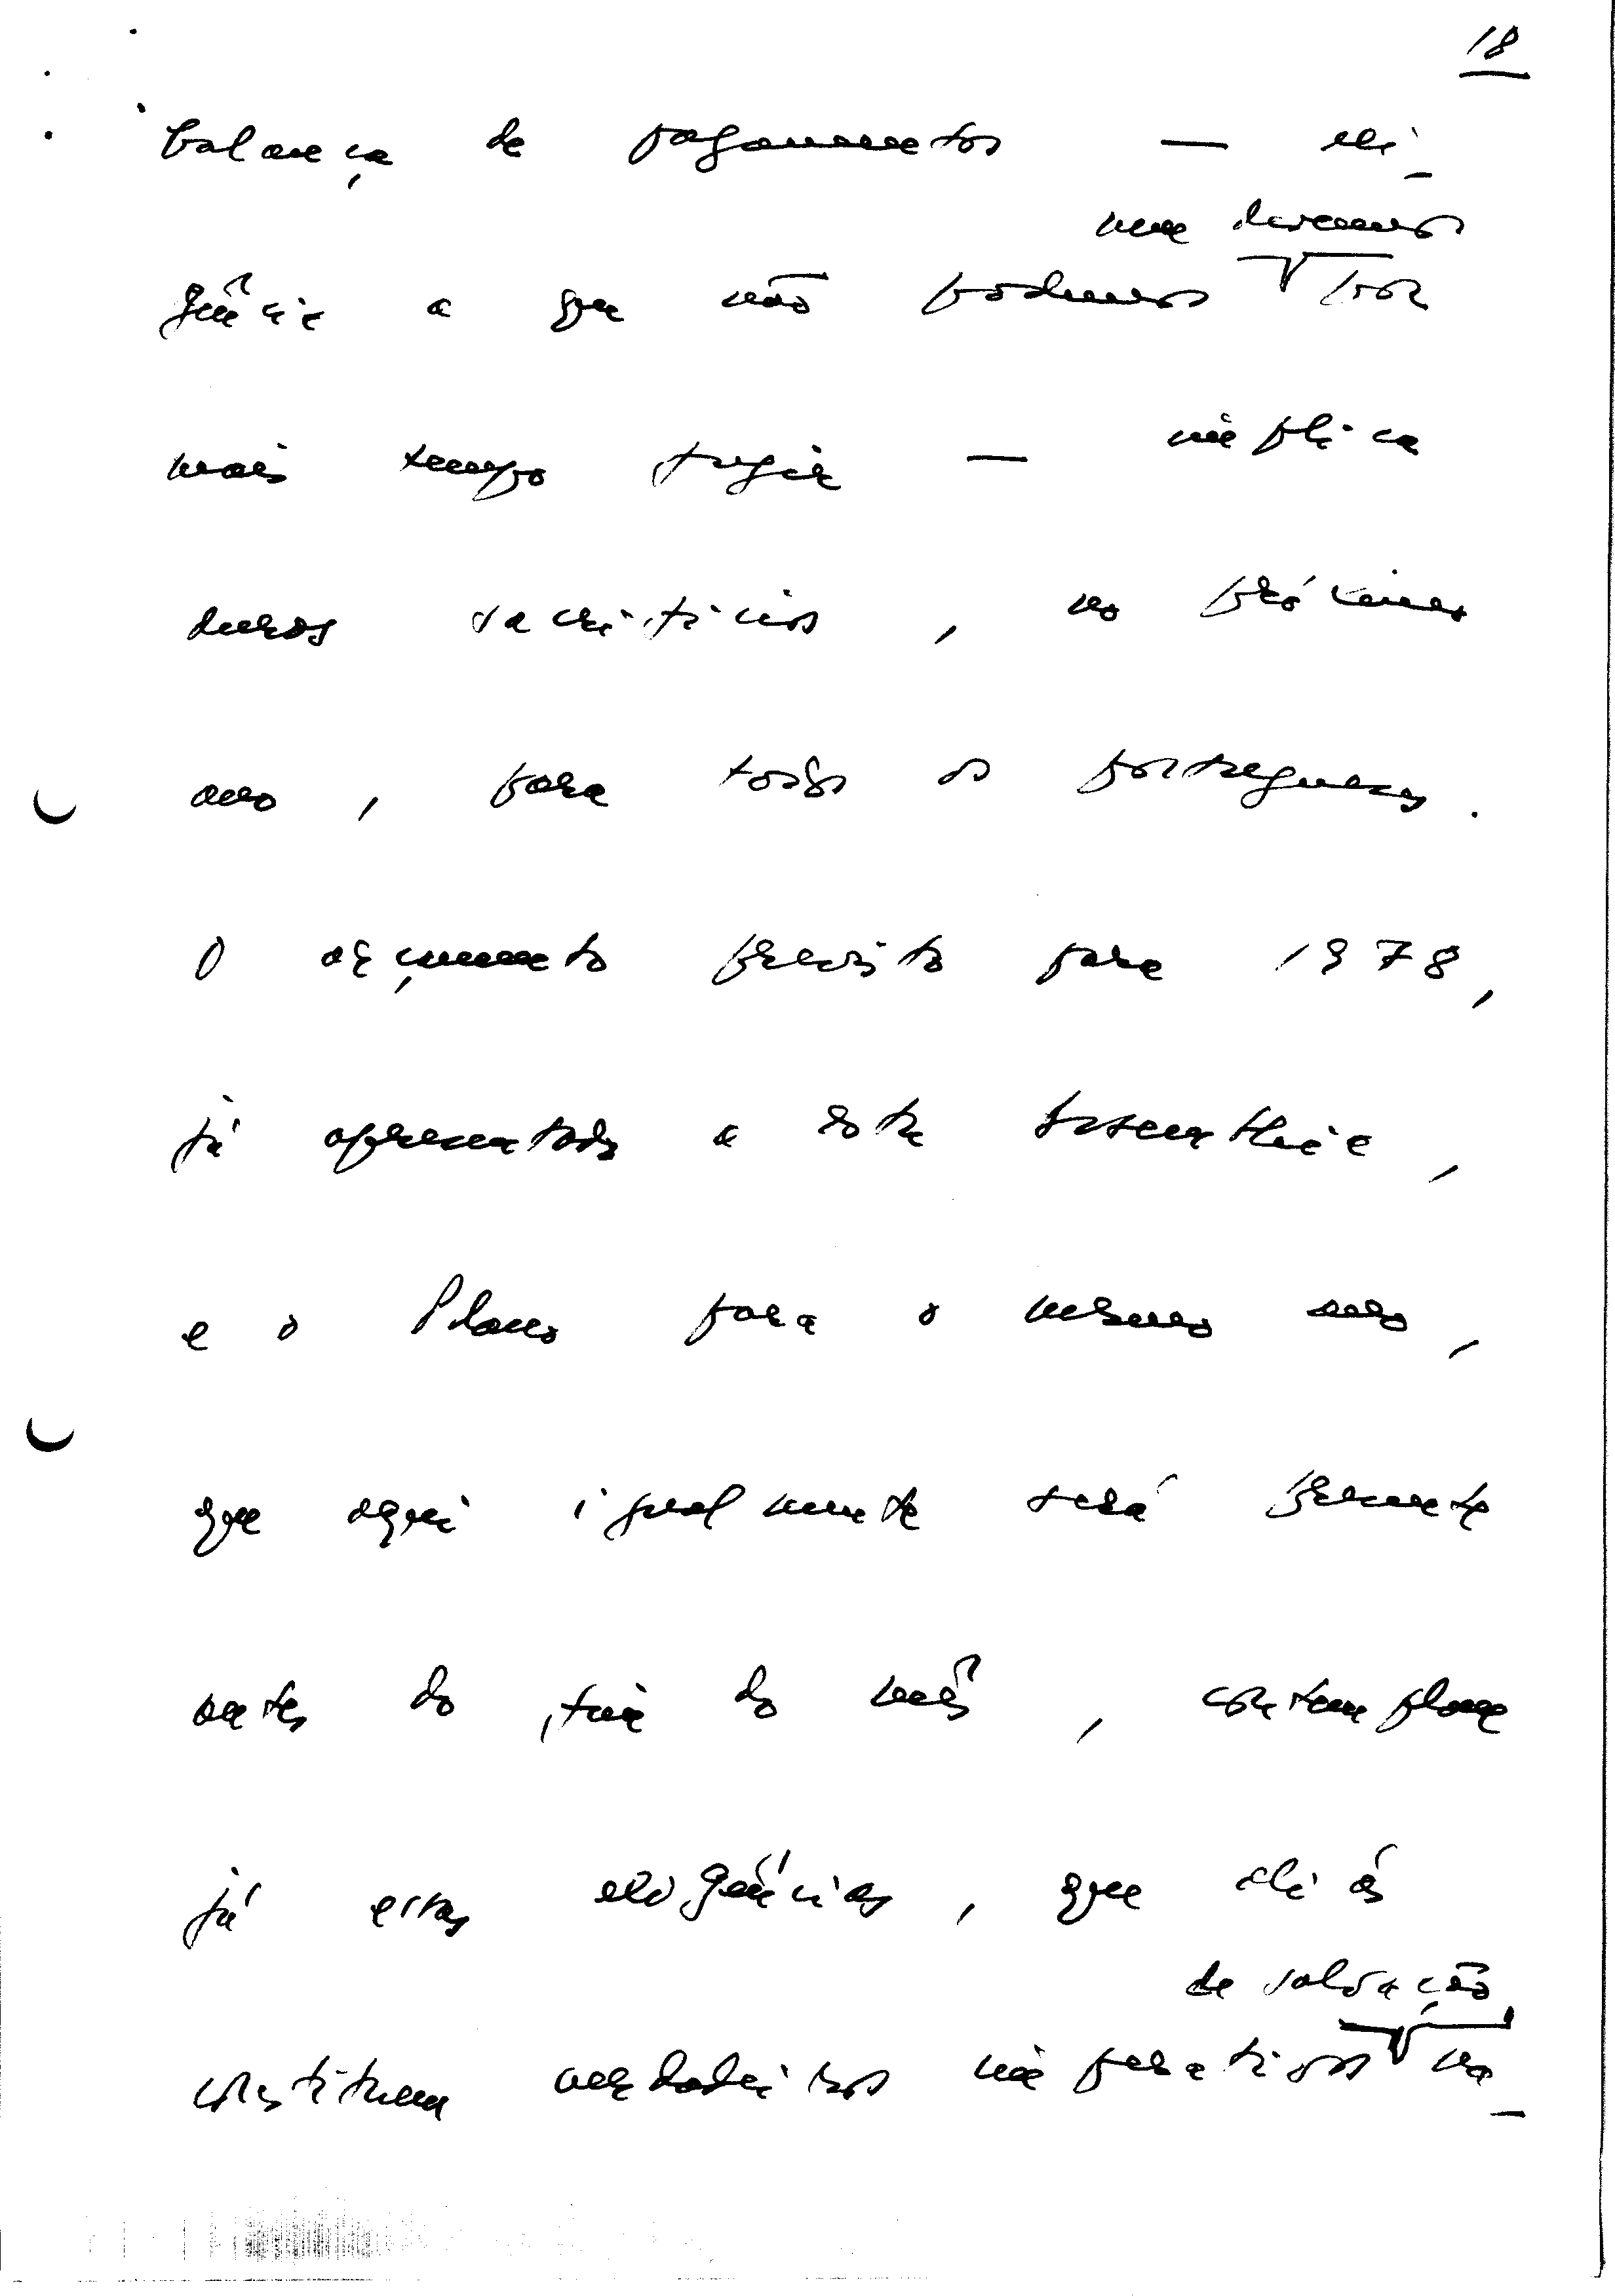 18
balança de pagamentos — exi-
nem devemos
gência a que não podemos por
mais tempo fugir — implica
duros sacrifícios, no próximo
ano, para todos os portugueses.
O orçamento previsto para 1978,
já apresentado a esta Assembleia,
e o Plano para o mesmo ano,
que aqui igualmente será presente
antes do fim do mês, contemplam
já essas exigências, que aliás
de salvação
constituem verdadeiros imperativos na-